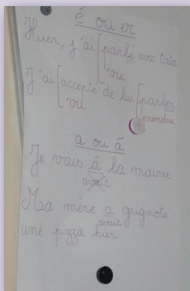 é ou er
Hier, j'ai parlé avec
vu
J'ai accepté de lui parler
vu prendre
a ou à
Je vais à la mairie
avait
Ma mère a grignoté
avait
une pizza hier